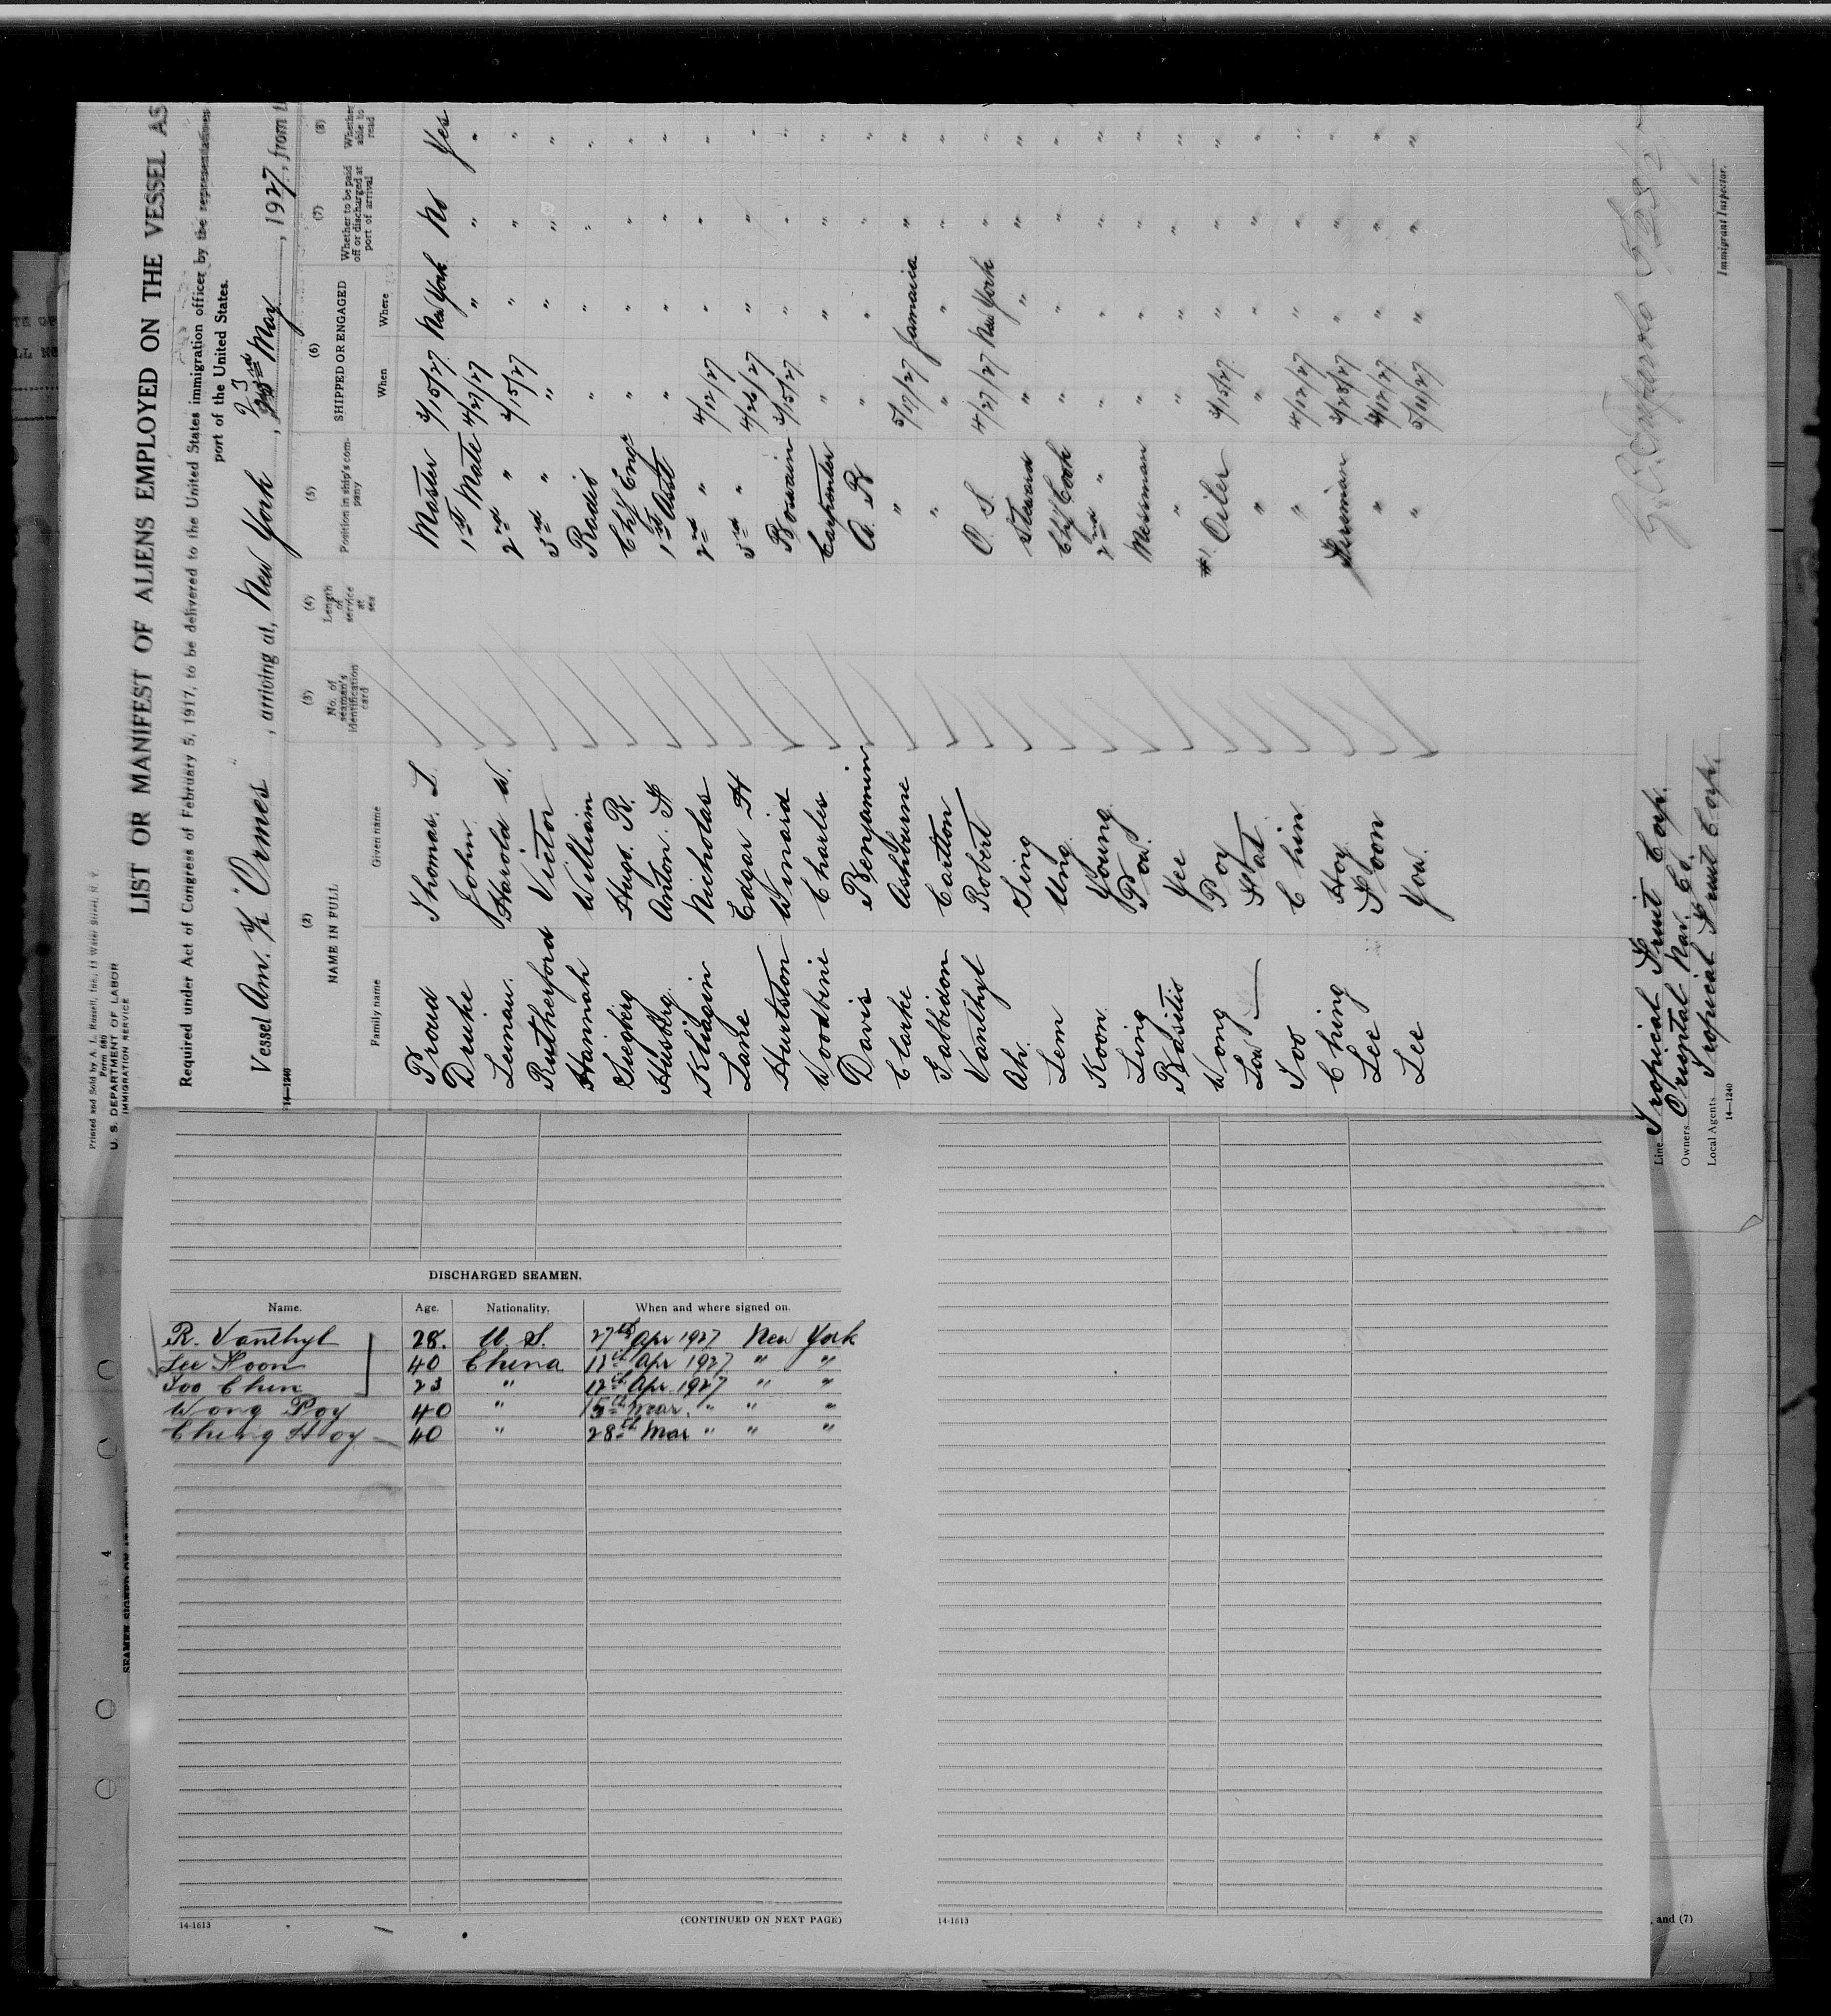 Printed and Sold by A. L. Russell, Inc., 13 Water Street, N. Y.
Form 680
U. S. DEPARTMENT OF LABOR
IMMIGRATION SERVICE
LIST OR MANIFEST OF ALIENS EMPLOYED ON THE VESSEL AS
Required under Act of Congress of February 5, 1917, to be delivered to the United States immigration officer by the representatives
port of the United States.
Vessel Am. "Ormes", arriving at, New York, 23 May, 1927, from
14—1240
(2) (3) (4) (5) (6) (7) (8)
NAME IN FULL No. of seaman's identification card Length of service at sea Position in ship's company SHIPPED OR ENGAGED Whether to be paid off or discharged at port of arrival Whether able to read
Family name Given name When Where
Proud Thomas. L. Master 3/15/27 New York No Yes
Druke John 1st Mate 4/27/27 " " "
Leman. Harold W. 2nd " 3/15/27 " " "
Rutherford Victor 3rd " " " " "
Hannah William Radio " " " "
Hugo. R. Chf Engr " " " "
Anton. 1st Asst " " " "
Nicholas 2nd " 4/12/27 " " "
Lane Edgar H 3rd " 4/26/27 " " "
Hurtston Winard Boswain 3/15/27 " " "
Woodbine Charles Carpenter " " " "
Davis Benjamin A. B " " " "
Clarke Ashburne " 5/17/27 Jamaica " "
Gabbidon Carlton " " " "
Vanthyl Robert O. S. 4/27/27 New York " "
Ah. Sing Steward " " " "
Lem Ung Chf Cook " " " "
Koon. Young 2nd " " " " "
Ling Dow. Messman " " " "
Basitio Yee " " " " "
Wong Poy #1 Oiler 3/15/27 " " "
Low Fat. " " " " "
Too Chin " 4/12/27 " " "
Ching Hoy Fireman 3/28/27 " " "
Lee Foon " 4/12/27 " " "
Lee You. " 5/11/27 " " "
Immigrant Inspector.
Line Tropical Fruit Corp.
Owners Oriental Nav. Co.
Local Agents Tropical Fruit Corp.
14—1240
DISCHARGED SEAMEN.
Name. Age. Nationality. When and where signed on.
R. Vanthyl 28. U. S. 27th Apr 1927 New York
Lee Foon 40 China 12th Apr 1927 " "
Too Chin 23 " 12th Apr. 1927 " "
Wong Poy 40 " 15th Mar. " " "
Ching Hoy 40 " 28th Mar " " "
14-1613
(CONTINUED ON NEXT PAGE)
14-1613
, and (7)
4